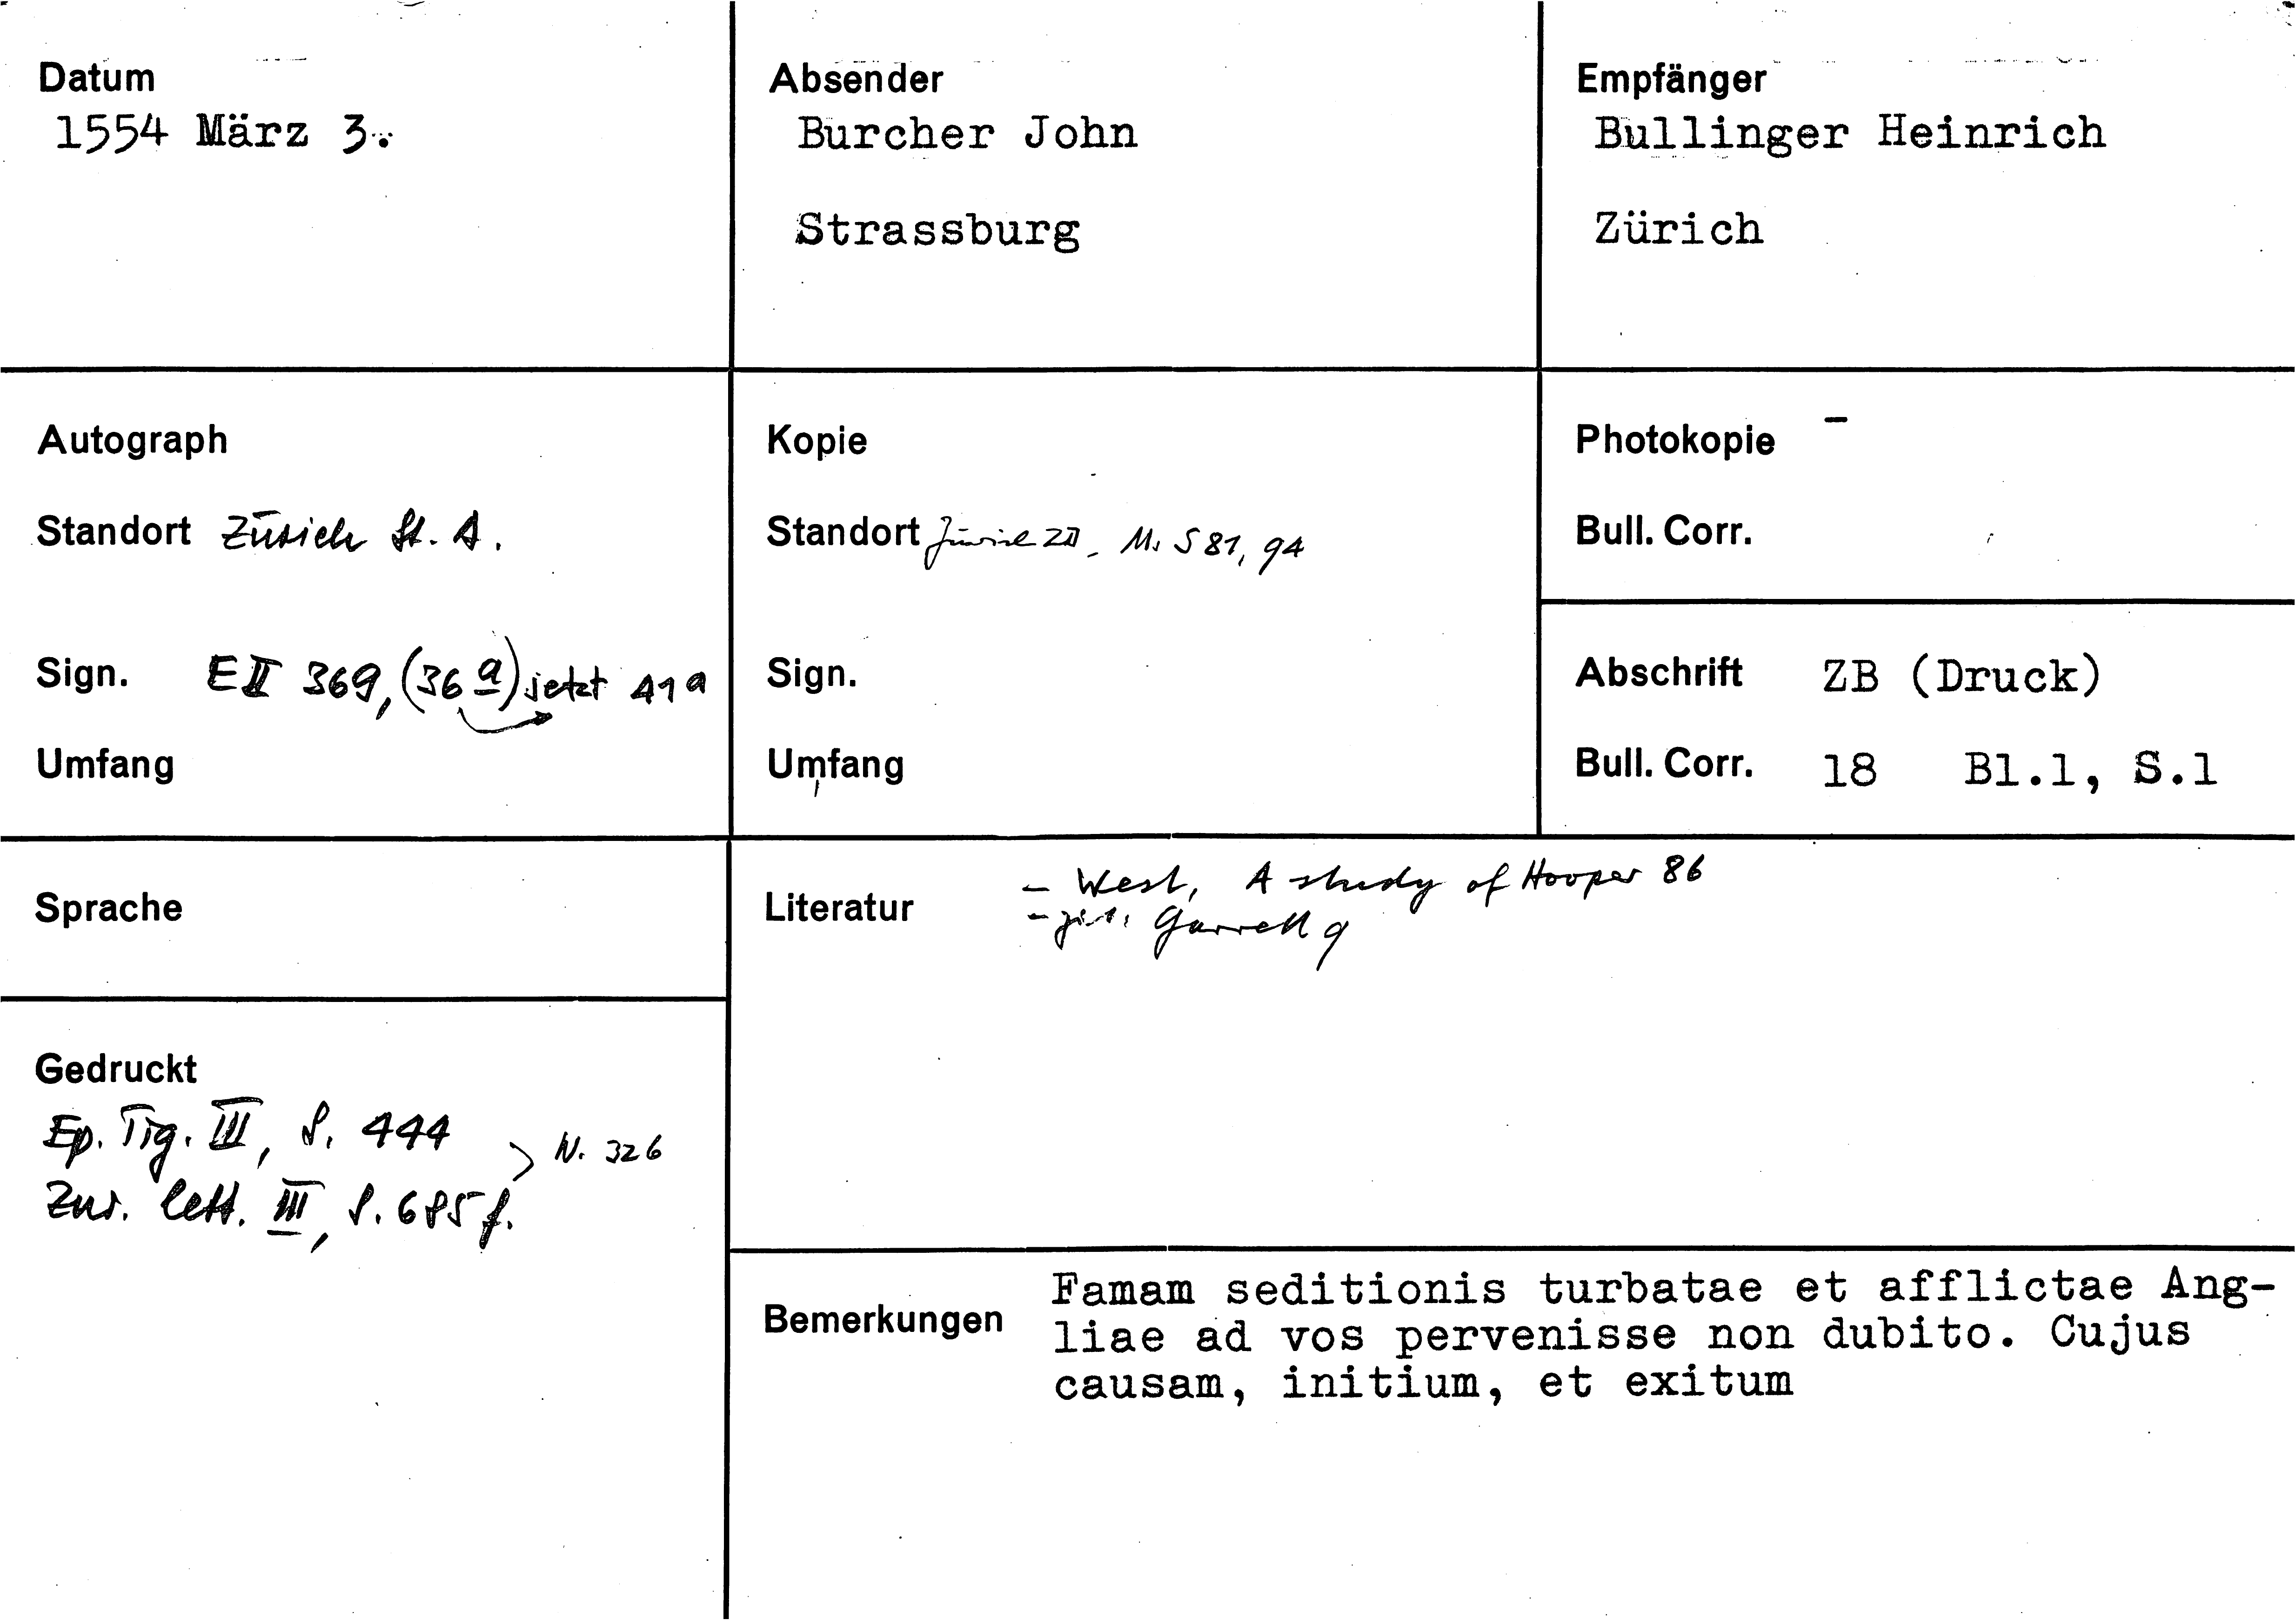 Datum
1554 März 3.
Absender
Burcher John
Strassburg
Empfänger
Bullinger Heinrich
Zürich
Autograph
Standort Zürich St. A.
Sign. E II 369, (36 a) jetzt 41a
Umfang
Kopie
Standort Zürich ZB, Ms S 81, 94
Sign.
Umfang
Photokopie –
Bull. Corr.
Abschrift ZB (Druck)
Bull. Corr. 18 Bl.1, S.1
Sprache
Literatur
– West, A study of Hooper 86
– zit. Garrett 9
Gedruckt
Ep. Tig. III, S. 444
> N. 326
Zur. lett. III, S. 685 f.
Bemerkungen
Famam seditionis turbatae et afflictae Ang-
liae ad vos pervenisse non dubito. Cujus
causam, initium, et exitum